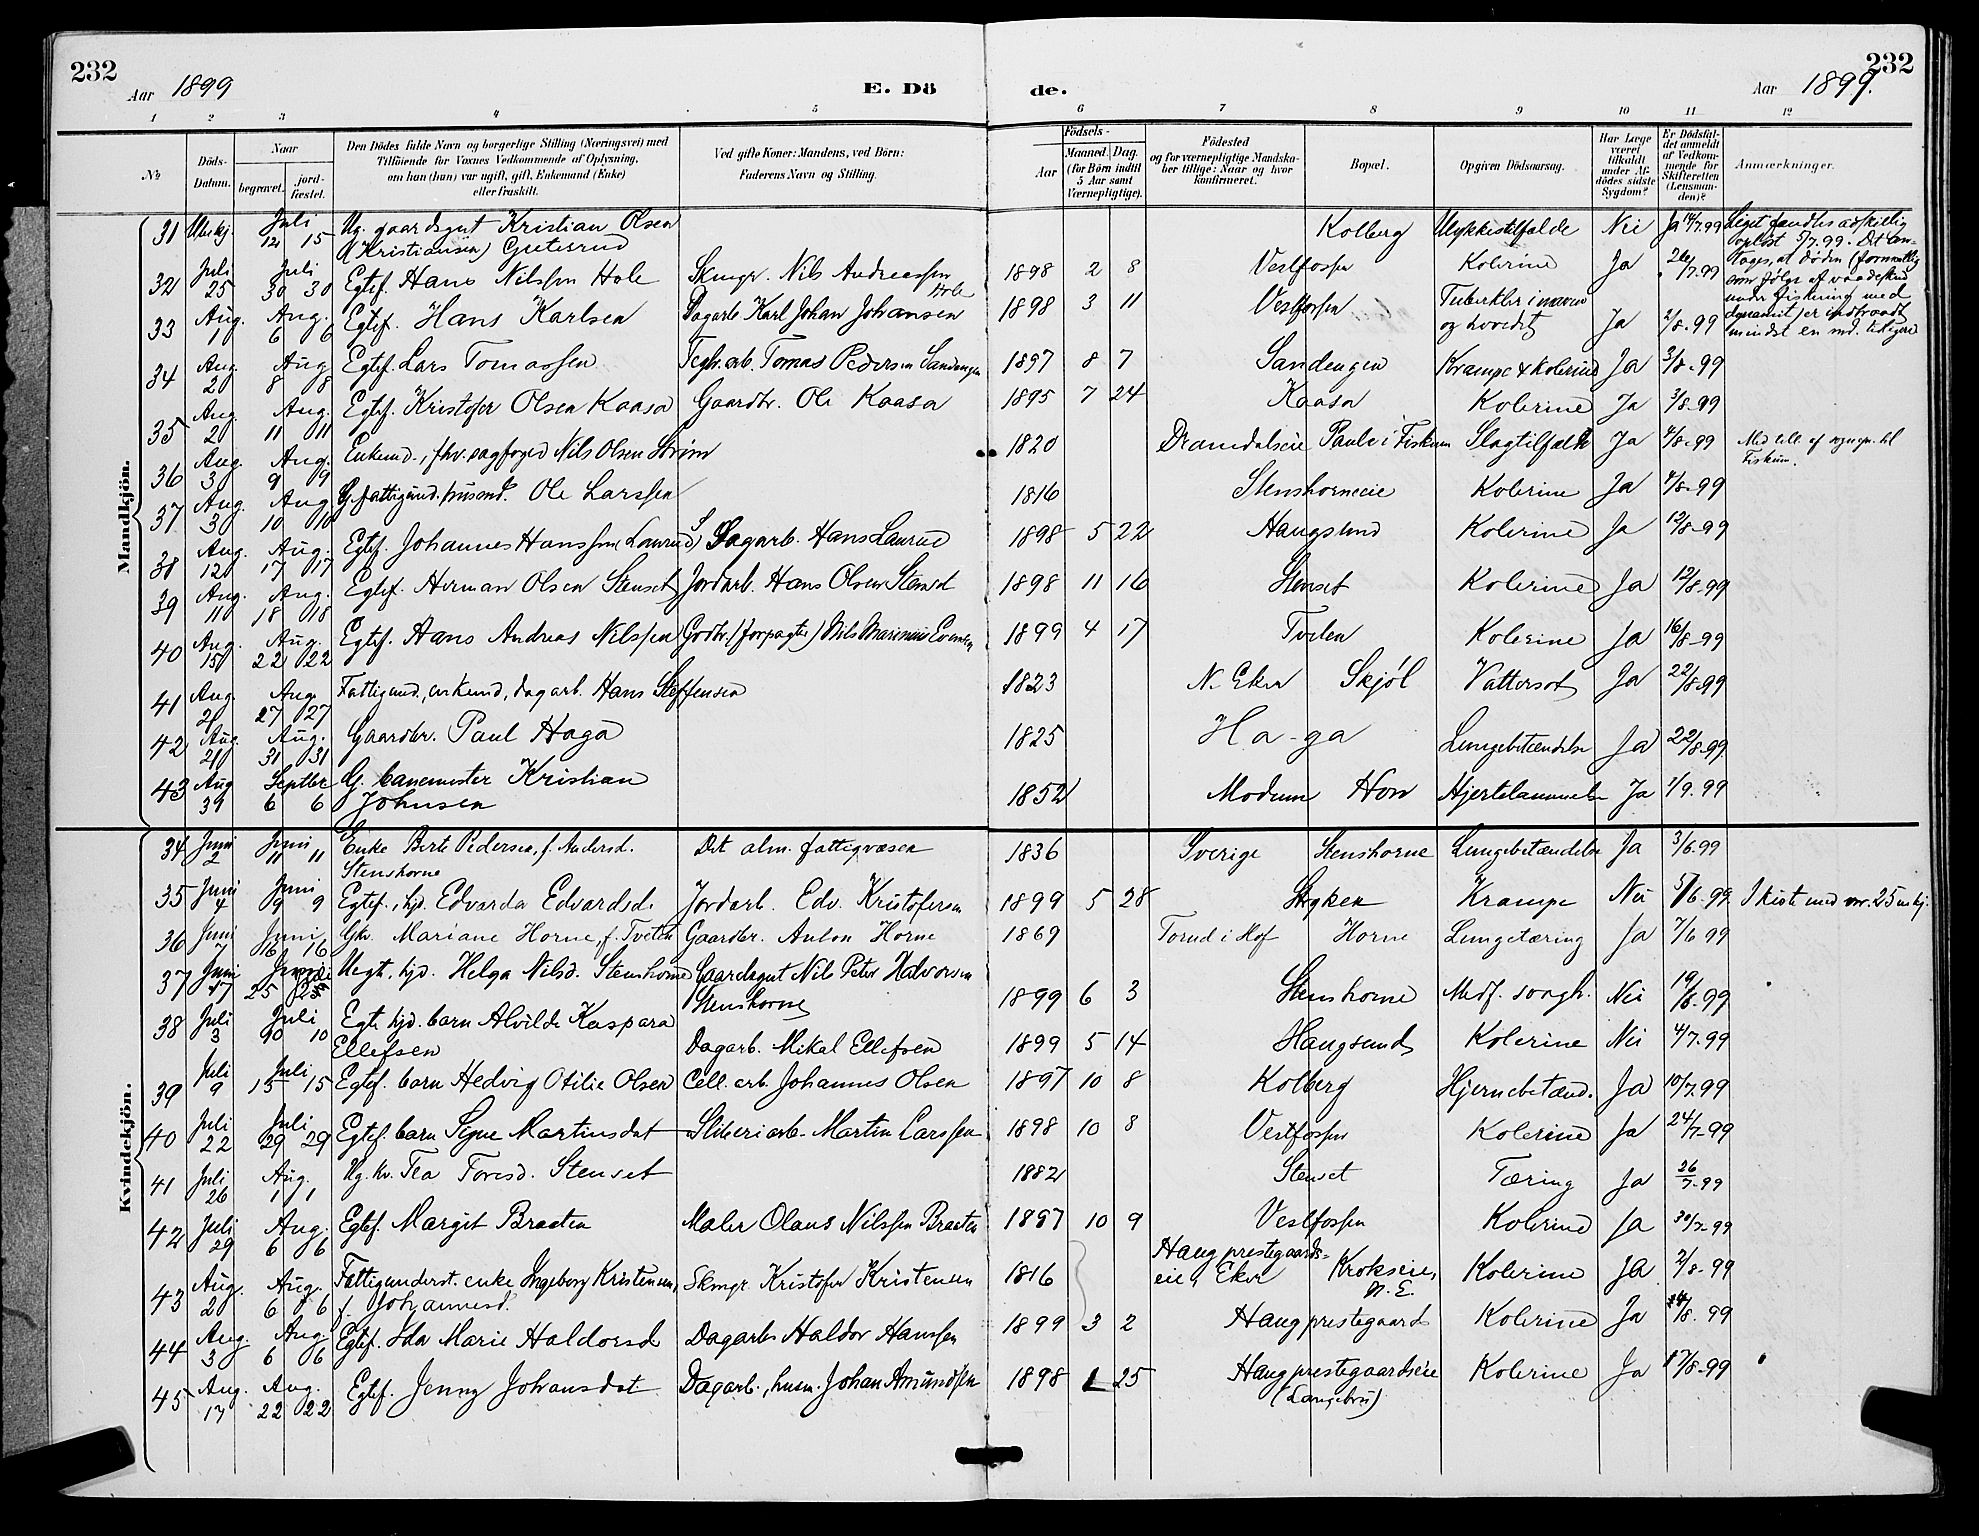 232
Aar 1899
E. Dö
de.
Aar 1899.
232
1 2 3 4 5 6 7 8 9 10 11 12
№
Döds-Datum.
Naar
begravet.
jord-fæstet.
Den Dödes fulde Navn og borgerlige Stilling (Næringsvei) med
Tilföiende for Voxnes Vedkommende af Oplysning,
om han (hun) var ugift, gift, Enkemand (Enke)
eller fraskilt.
Ved gifte Koner: Mandens, ved Börn:
Faderens Navn og Stilling.
Födsels-
Aar
Maaned. Dag.
(for Börn indtil
5 Aar samt
Værnepligtige).
Födested
og for værnepligtige Mandska-
ber tillige: Naar og hvor
konfirmeret.
Bopæl.
Opgiven Dödsaarsag.
Har Læge
været
tilkaldt
under Af-
dödes sidste
Sygdom?
Er Dödsfal-
det anmeldt
af Vedkom-
mende for
Skifteretten
(Lensman-
den)?
Anmærkninger.
Mandkjön.
31 Ubekj. Juli 12 15 Ug. gaardsgut Kristian Olsen Kolberg Ulykkestilfælde Nei Ja 14/7.99 Liget fandtes adskillig
(Kristiansen) Greterud opløst 5/7.99. Det an-
32 Juli 25 Juli 30 30 Egtef. Hans Nilssen Hole Skmgr. Nils Andreassen Hole 1898 2 8 Vestfossen Kolerine Ja 26/7.99 tages, at døden (formentlig
som følge af vaadeskud
under fiskning med
33 Aug. 1 Aug. 6 6 Egtef. Hans Karlsen Dagarb. Karl Johan Johansen 1898 3 11 Vestfossen Tuberkler i maven
og hovedet Ja 2/8.99 dynamit) er indtraadt
mindst en md. tidligere
34 Aug. 2 Aug. 8 8 Egtef. Lars Tomassen Teglv.arb. Tomas Pedersen Sandengen 1897 8 7 Sandengen Krampe & kolerine Ja 3/8.99
35 Aug. 2 Aug. 11 11 Egtef. Kristofer Olsen Kaasa Gaardbr. Ole Kaasa 1895 7 24 Kaasa Kolerine Ja 3/8.99
36 Aug. 3 Aug. 9 9 Enkemd., fhv. sagfoged Nils Olsen Strøm 1820 Dramdalseie Paule i Fiskum Slagtilfælde Ja 4/8.99 Med till. af sognepr. til
Fiskum.
37 Aug. 3 Aug. 10 10 G. fattigund. husmd. Ole Larssen 1816 Stenshorneeie Kolerine Ja 4/8.99
38 Aug. 12 Aug. 17 17 Egtef. Johannes Hanssen (Laurud) Dagarb. Hans Laurud 1898 5 22 Haugsund Kolerine Ja 12/8.99
39 Aug. 11 Aug. 18 18 Egtef. Herman Olsen Stenset Jordarb. Hans Olsen Stenset 1898 11 16 Stenset Kolerine Ja 12/8.99
40 Aug. 15 Aug. 22 22 Egtef. Hans Andreas Nilssen Grdbr. (forpagter) Nils Marenius Evensen 1899 4 17 Tveten Kolerine Ja 16/8.99
41 Aug. 21 Aug. 27 27 Fattigund., enkemd., dagarb. Hans Steffensen 1823 N. Eker Skjøl Vattersot Ja 22/8.99
42 Aug. 21 Aug. 31 31 Gaardbr. Paul Haga 1825 Haga Lungebetændelse Ja 22/8.99
43 Aug 31 Septbr 6 6 G. banemester Kristian
Johnsen 1852 Modum Horn Hjertelammelse Ja 1/9.99
Kvindekjön.
34 Juni 2 Juni 11 11 Enke Berte Pedersen, f. Andersd.
Stenshorne Det alm. fattigvæsen 1836 Sverige Stenshorne Lungebetændelse Ja 3/6.99
35 Juni 4 Juni 9 9 Egtef., hjd. Edvarda Edvardsd. Jordarb. Edv. Kristofersen 1899 5 28 Stryken Krampe Nei 5/6.99 I kiste med nr. 25 mkj.
36 Juni 7 Juni 16 16 Gkv. Mariane Horne, f. Tveten Gaardbr. Anton Horne 1869 Torud i Hof Horne Lungetæring Ja 7/6 99
37 Juni 17 Juni 25 Uegt. hjd. Helga Nilsd. Stenshorne Gaardsgut Nils Peter Halvorsen
Stenshorne 1899 6 3 Stenshorne Medf. svagh. Nei 19/6.99
38 Juli 3 Juli 10 10 Egte hjd. barn Alvilde Kaspara
Ellefsen Dagarb. Mikal Ellefsen 1899 5 14 Haugsund Kolerine Nei 4/7.99
39 Juli 9 Juli 15 15 Egtef. barn Hedvig Otilie Olsen Cell.arb. Johannes Olsen 1897 10 8 Kolberg Hjernebetænd. Ja 10/7.99
40 Juli 22 Juli 29 29 Egtef. barn Signe Martinsdat Sliberiarb. Martin Larssen 1898 10 8 Vestfossen Kolerine Ja 24/7.99
41 Juli 26 Aug. 1 1 Ug. kv. Tea Toresd. Stenset 1882 Stenset Tæring Ja 26/7.99
42 Juli 29 Aug. 6 6 Egtef. Margit Braaten Maler Olaus Nilssen Braaten 1897 10 9 Vestfossen Kolerine Ja 30/7.99
43 Aug. 2 Aug. 6 6 Fattigunderst. enke Ingeborg Kristensen,
f. Johannesd. Skmgr. Kristofer Kristensen 1816 Haug prestegaards-
eie, Eker Krokseie,
N. E. Kolerine Ja 2/8.99
44 Aug. 3 Aug. 6 6 Egtef. Ida Marie Haldorsd Dagarb. Haldor Hanssen 1899 3 2 Haug prestegaard Kolerine Ja 4/8.99
45 Aug. 17 Aug. 22 22 Egtef. Jenny Johansdat Dagarb., husm. Johan Amundssen 1898 1 25 Haug prestegaardseie
(Langebru) Kolerine Ja 17/8.99